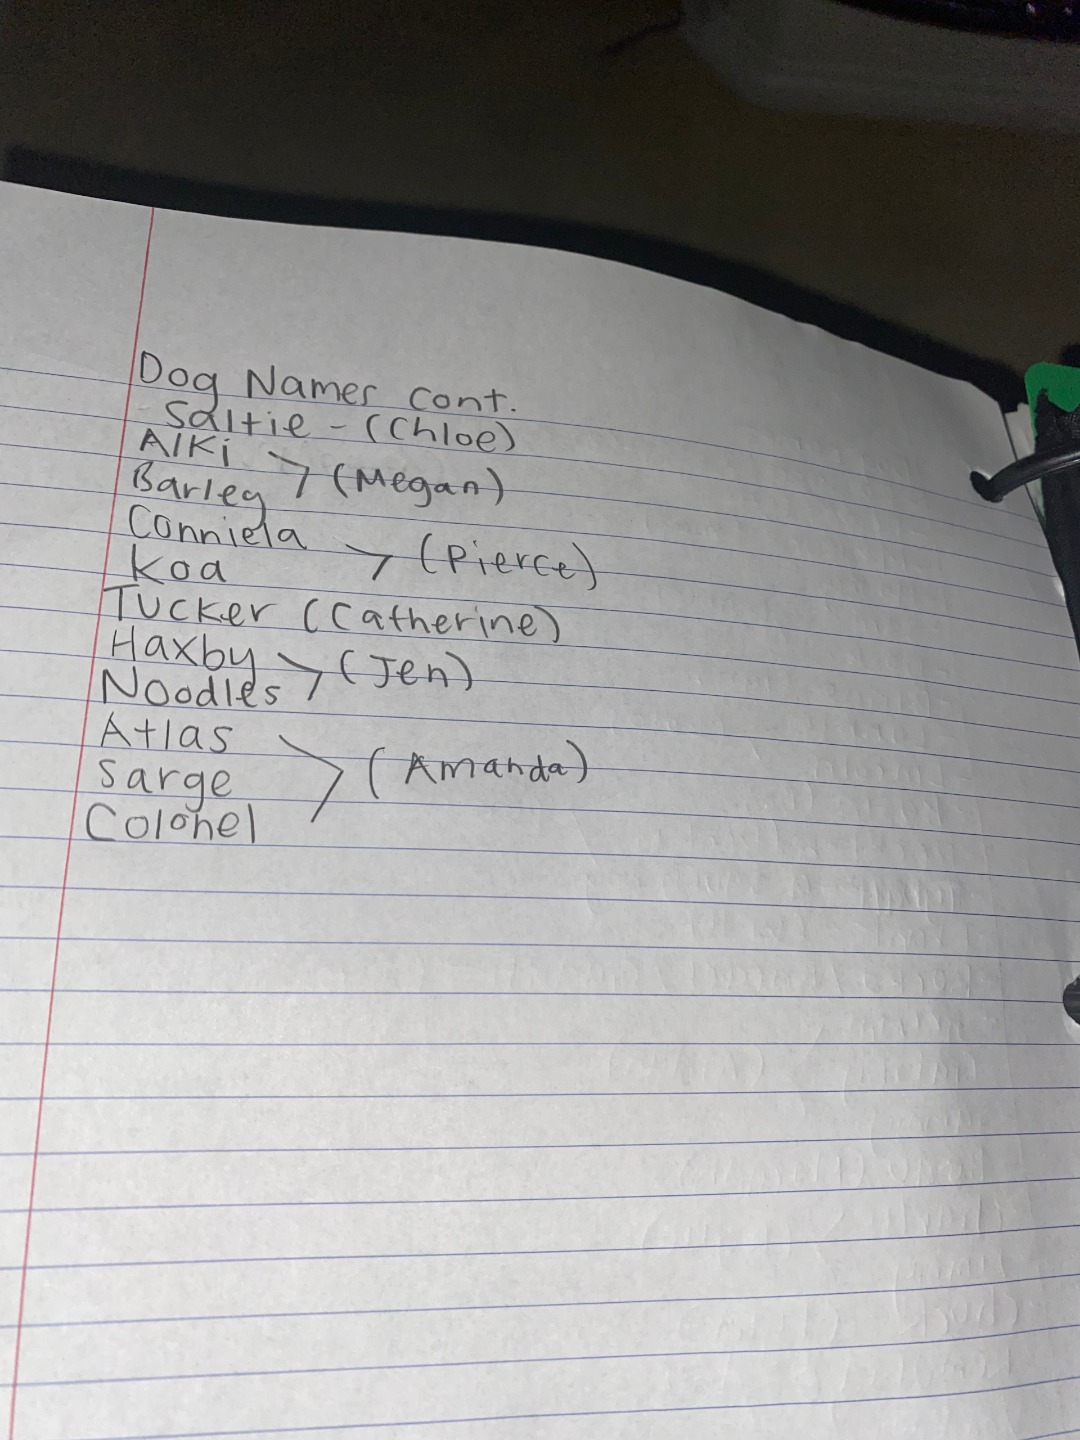 Dog Names cont.
Saltie - (Chloe)
Alki
Barley > (Megan)
Conniela
Koa > (Pierce)
Tucker (Catherine)
Haxby
Noodles > (Jen)
Atlas
Sarge > (Amanda)
Colonel